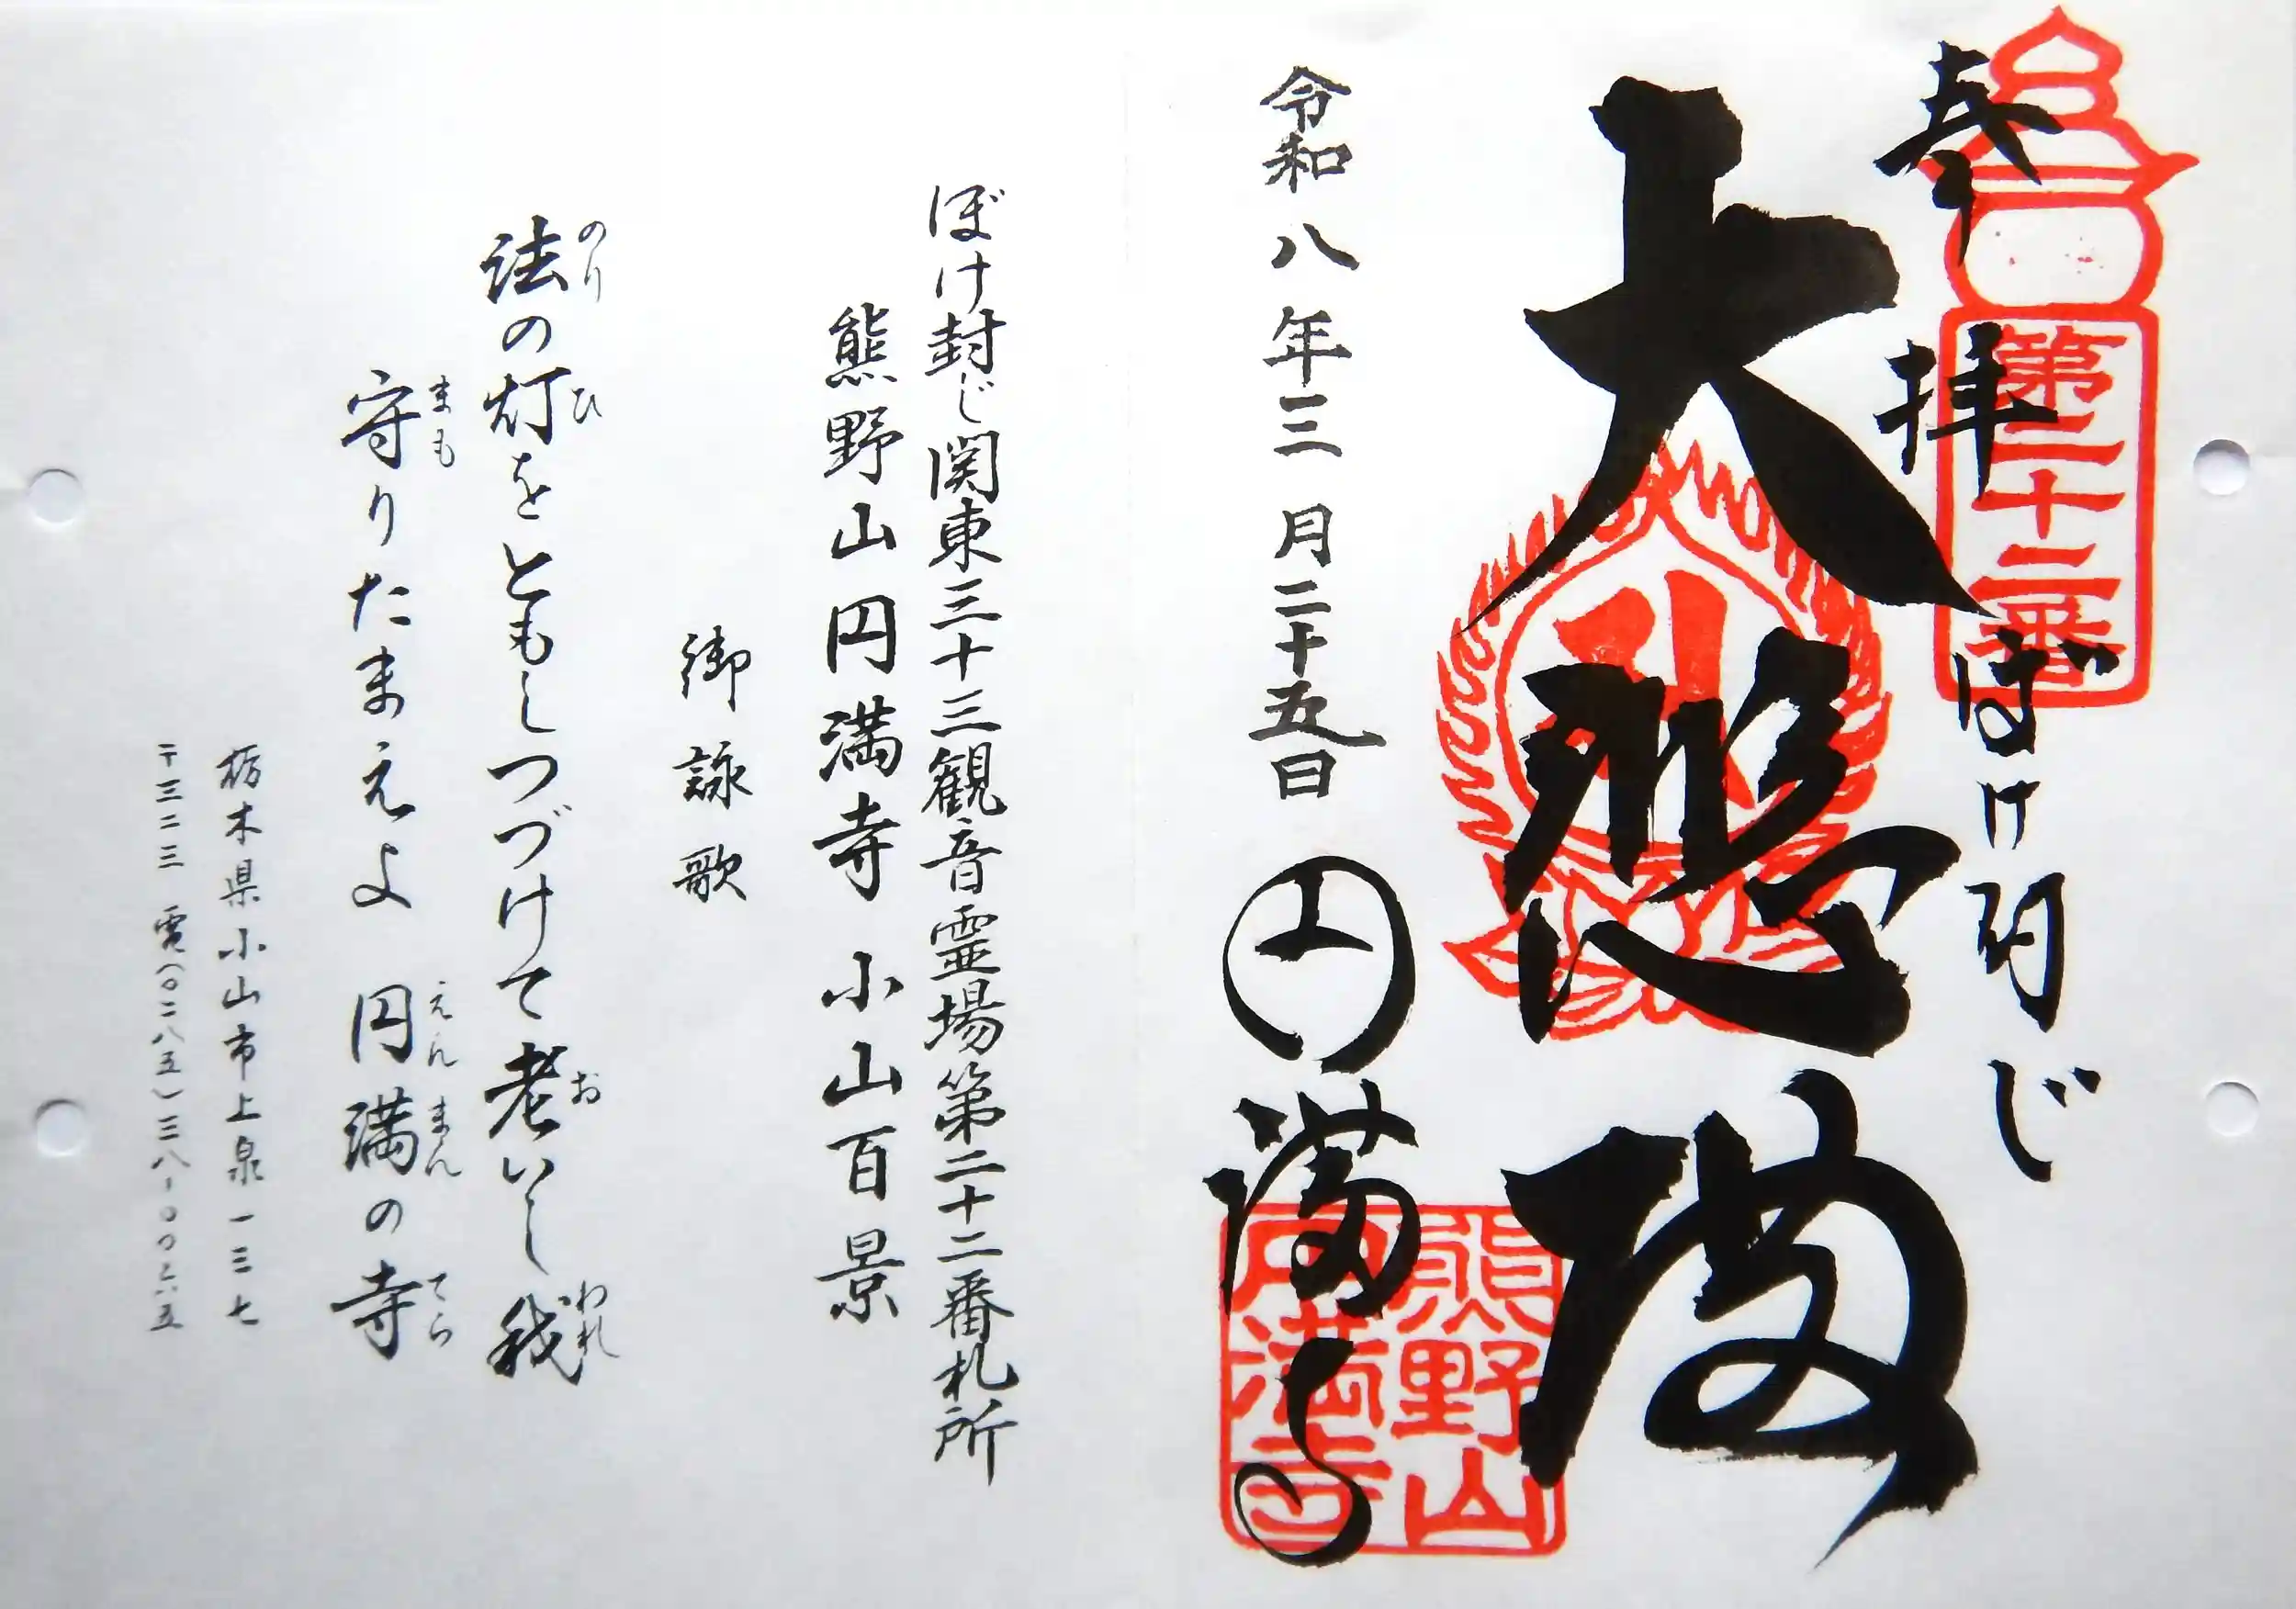 奉拝
ぼけ封じ
第二十二番
大悲殿
令和八年三月二十五日
円満寺
熊野山
円満寺
ぼけ封じ関東三十三観音霊場第二十二番札所
熊野山円満寺 小山百景
御詠歌
法の灯をともしつづけて老いし我
のり ひ お われ
守りたまえよ 円満の寺
まも えん まん てら
栃木県小山市上泉一三七
〒三二三 電(〇二八五)三八-〇〇六五